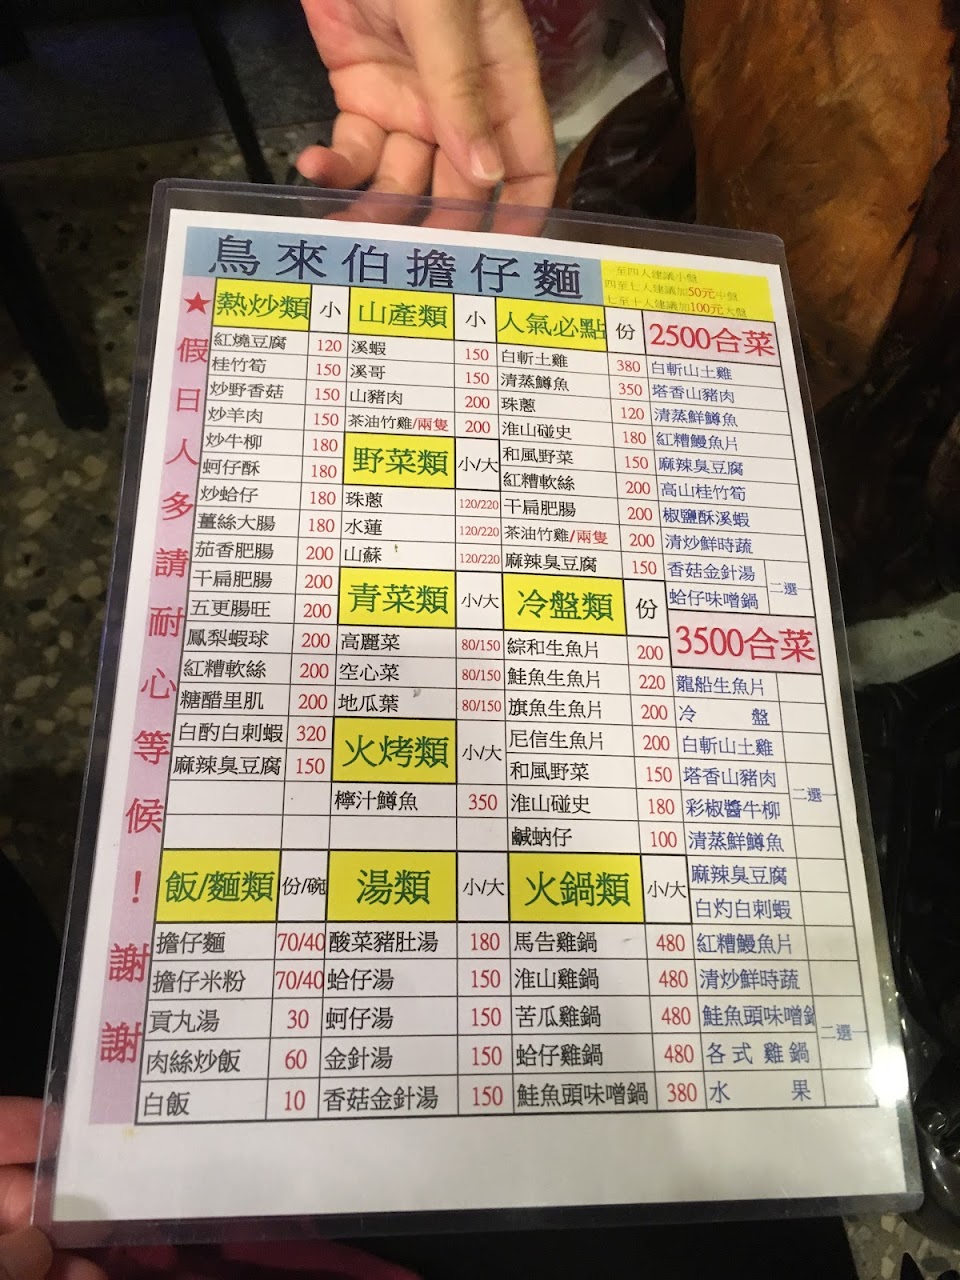 烏來伯擔仔麵
一至四人建議小盤
四至七人建議加50元中盤
七至十人建議加100元大盤
★假日人多請耐心等候！謝謝
熱炒類 小
紅燒豆腐 120
桂竹筍 150
炒野香菇 150
炒羊肉 150
炒牛柳 180
蚵仔酥 180
炒蛤仔 180
薑絲大腸 180
茄香肥腸 200
干扁肥腸 200
五更腸旺 200
鳳梨蝦球 200
紅糟軟絲 200
糖醋里肌 200
白酌白刺蝦 320
麻辣臭豆腐 150
山產類 小
溪蝦 150
溪哥 150
山豬肉 200
茶油竹雞/兩隻 200
野菜類 小/大
珠蔥 120/220
水蓮 120/220
山蘇 120/220
青菜類 小/大
高麗菜 80/150
空心菜 80/150
地瓜葉 80/150
火烤類 小/大
檸汁鱒魚 350
人氣必點 份
白斬土雞 380
清蒸鱒魚 350
珠蔥 120
淮山碰史 180
和風野菜 150
紅糟軟絲 200
干扁肥腸 200
茶油竹雞/兩隻 200
麻辣臭豆腐 150
冷盤類 份
綜和生魚片 200
鮭魚生魚片 220
旗魚生魚片 200
尼信生魚片 200
和風野菜 150
淮山碰史 180
鹹蚋仔 100
2500合菜
白斬山土雞
塔香山豬肉
清蒸鮮鱒魚
紅糟鰻魚片
麻辣臭豆腐
高山桂竹筍
椒鹽酥溪蝦
清炒鮮時蔬
香菇金針湯
蛤仔味噌鍋
二選一
3500合菜
龍船生魚片
冷 盤
白斬山土雞
塔香山豬肉
彩椒醬牛柳
二選一
清蒸鮮鱒魚
麻辣臭豆腐
白灼白刺蝦
紅糟鰻魚片
清炒鮮時蔬
鮭魚頭味噌鍋
各式雞鍋
二選一
水 果
飯/麵類 份/碗
擔仔麵 70/40
擔仔米粉 70/40
貢丸湯 30
肉絲炒飯 60
白飯 10
湯類 小/大
酸菜豬肚湯 180
蛤仔湯 150
蚵仔湯 150
金針湯 150
香菇金針湯 150
火鍋類 小/大
馬告雞鍋 480
淮山雞鍋 480
苦瓜雞鍋 480
蛤仔雞鍋 480
鮭魚頭味噌鍋 380